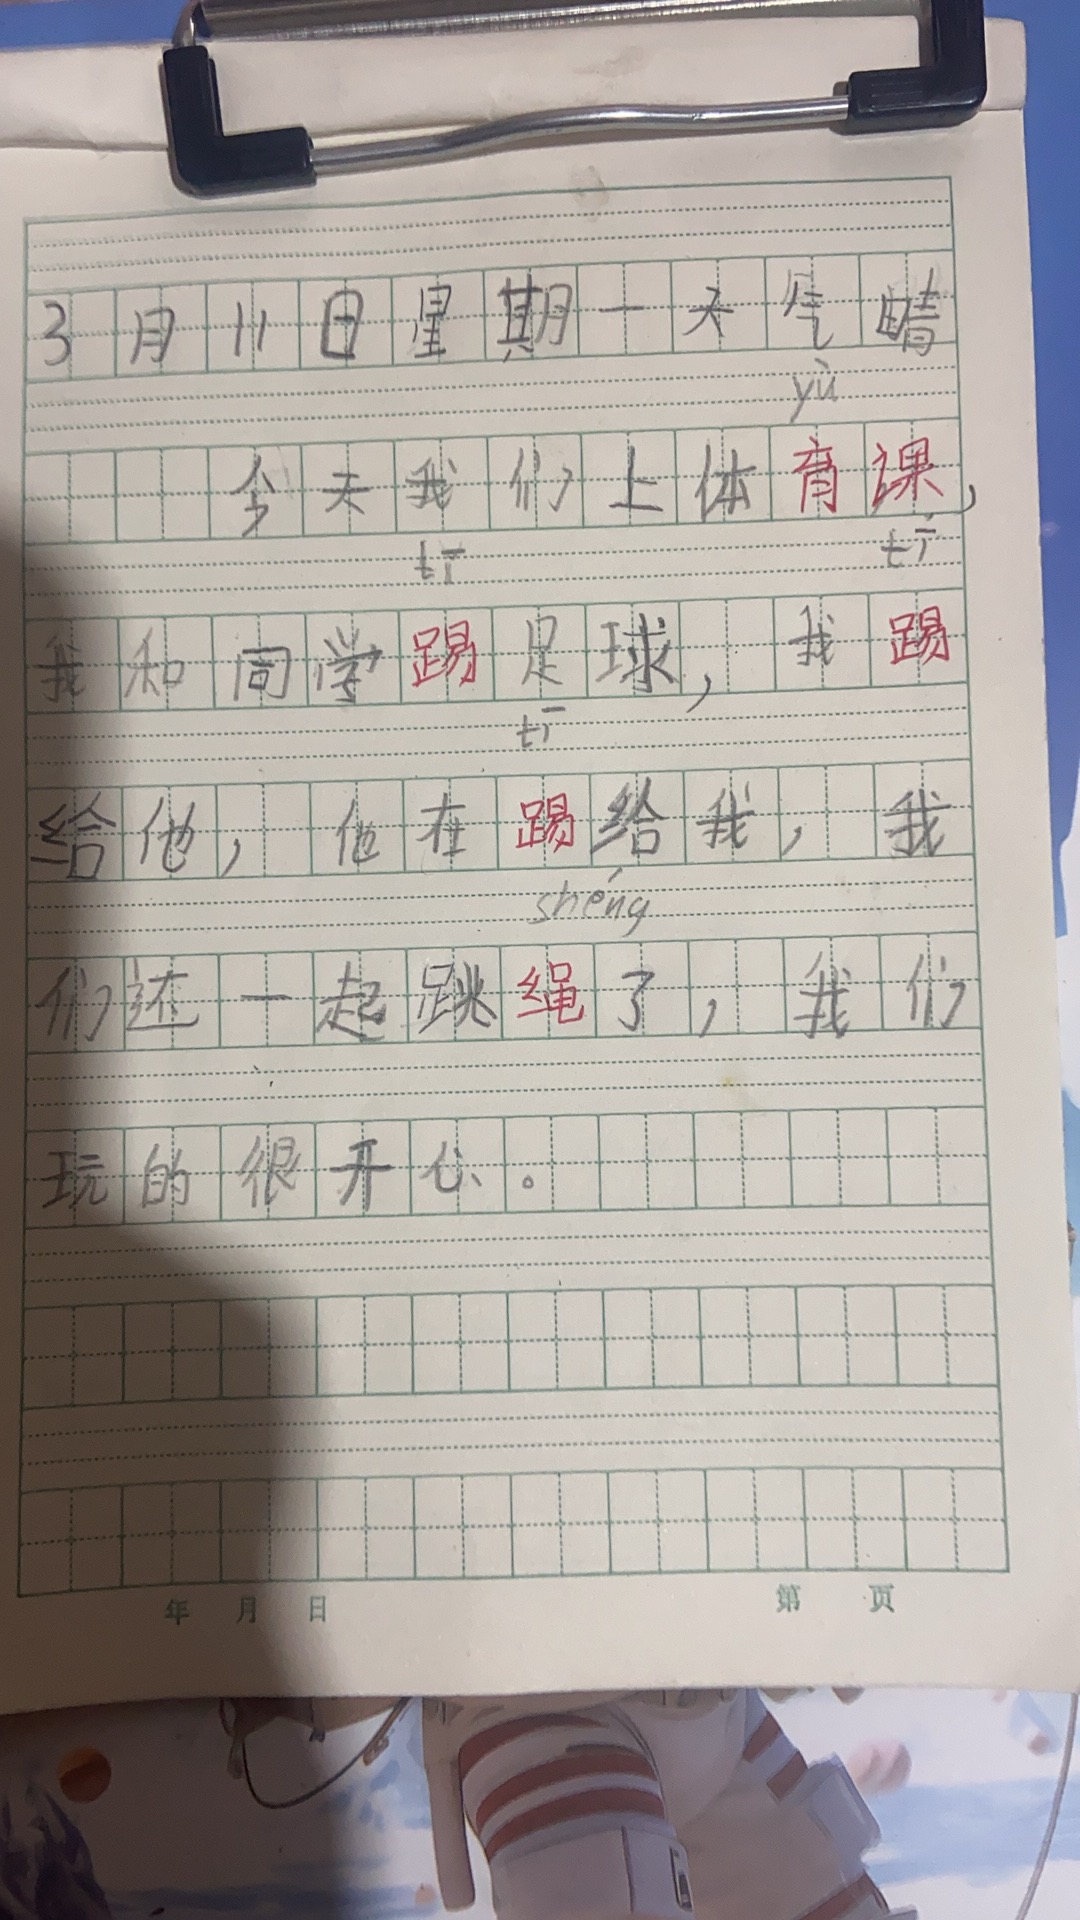 3月11日星期一天气晴
yù
今天我们上体育课，
tī tī
我和同学踢足球，我踢
tī
给他，他在踢给我，我
shéng
们还一起跳绳了，我们
玩的很开心。
年 月 日 第 页